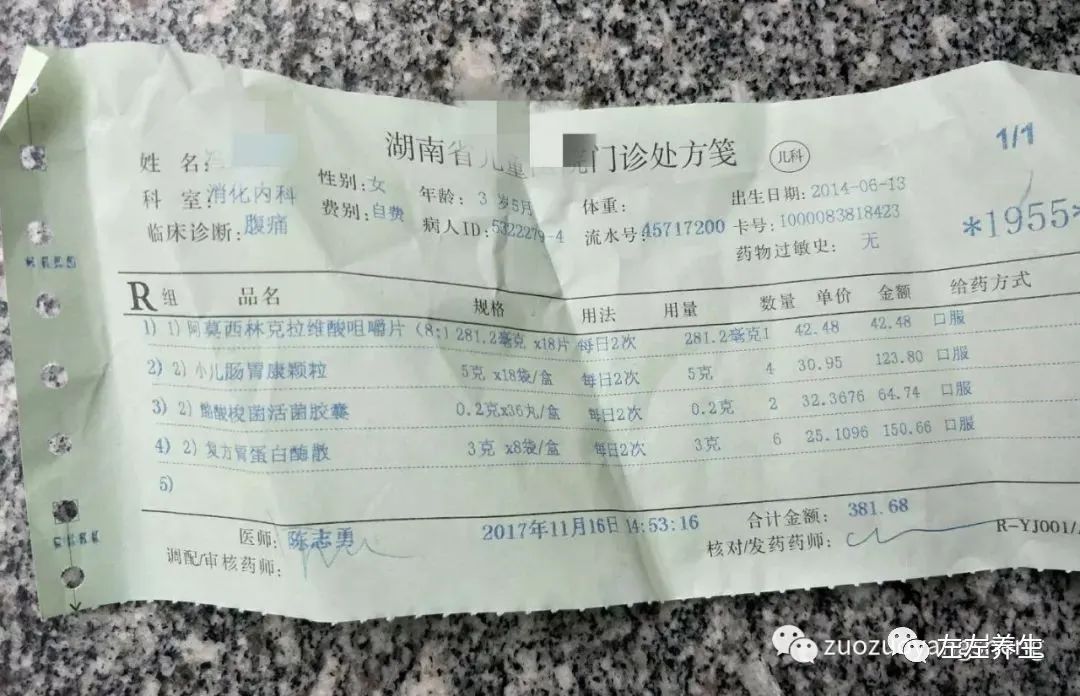 湖南省儿童 院门诊处方笺 儿科 1/1
姓 名: 性别:女 年龄: 3 岁5月 体重: 出生日期:2014-06-13
科 室:消化内科 费别:自费 病人ID:5322279-4 流水号:45717200 卡号:1000083818423 *1955*
临床诊断:腹痛 药物过敏史: 无
R 组 品名 规格 用法 用量 数量 单价 金额 给药方式
1) 1)阿莫西林克拉维酸咀嚼片(8: 281.2毫克 x18片 每日2次 281.2毫克1 42.48 42.48 口服
2) 2)小儿肠胃康颗粒 5克 x18袋/盒 每日2次 5克 4 30.95 123.80 口服
3) 2)酪酸梭菌活菌胶囊 0.2克x36丸/盒 每日2次 0.2克 2 32.3676 64.74 口服
4) 2)复方胃蛋白酶散 3克 x8袋/盒 每日2次 3克 6 25.1096 150.66 口服
5)
医师: 陈志勇 2017年11月16日 14:53:16 合计金额: 381.68
调配/审核药师: 核对/发药药师: R-YJ001/
左左养生